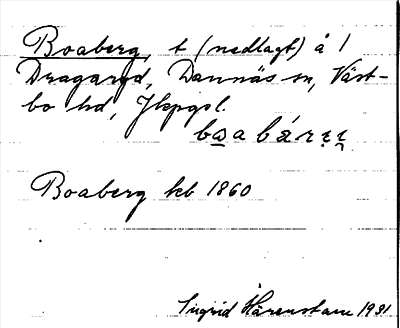 Boaberg, t (nedlagt) å 1
Dragaryd, Dannäs sn, Väst-
bo hd, Jkpgsl.
Boaberg kb 1860
Ingrid Härenstam 1931